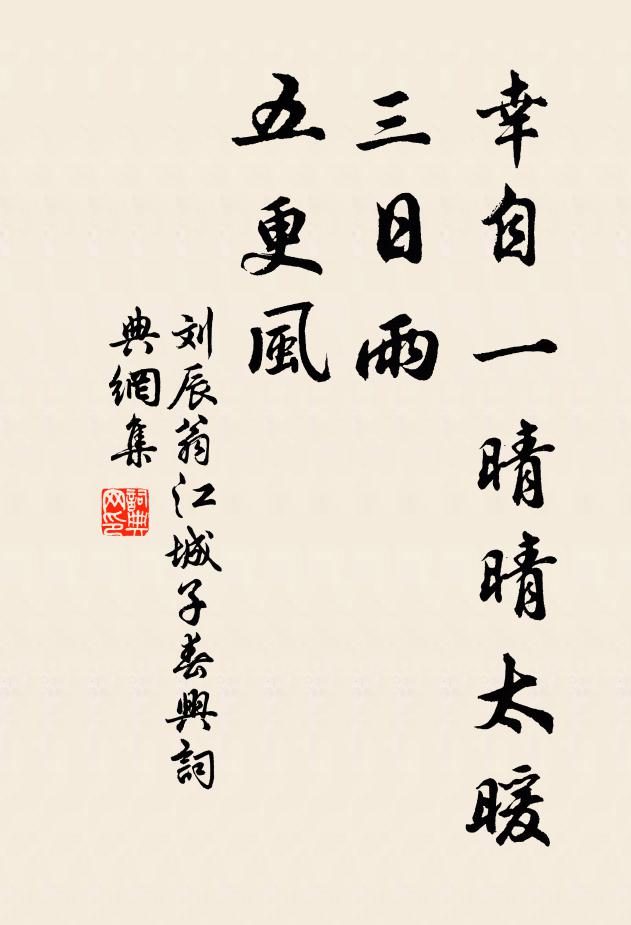 幸自一晴晴太暖
三日雨
五更風
刘辰翁江城子春興詞
典網集
詞典网印